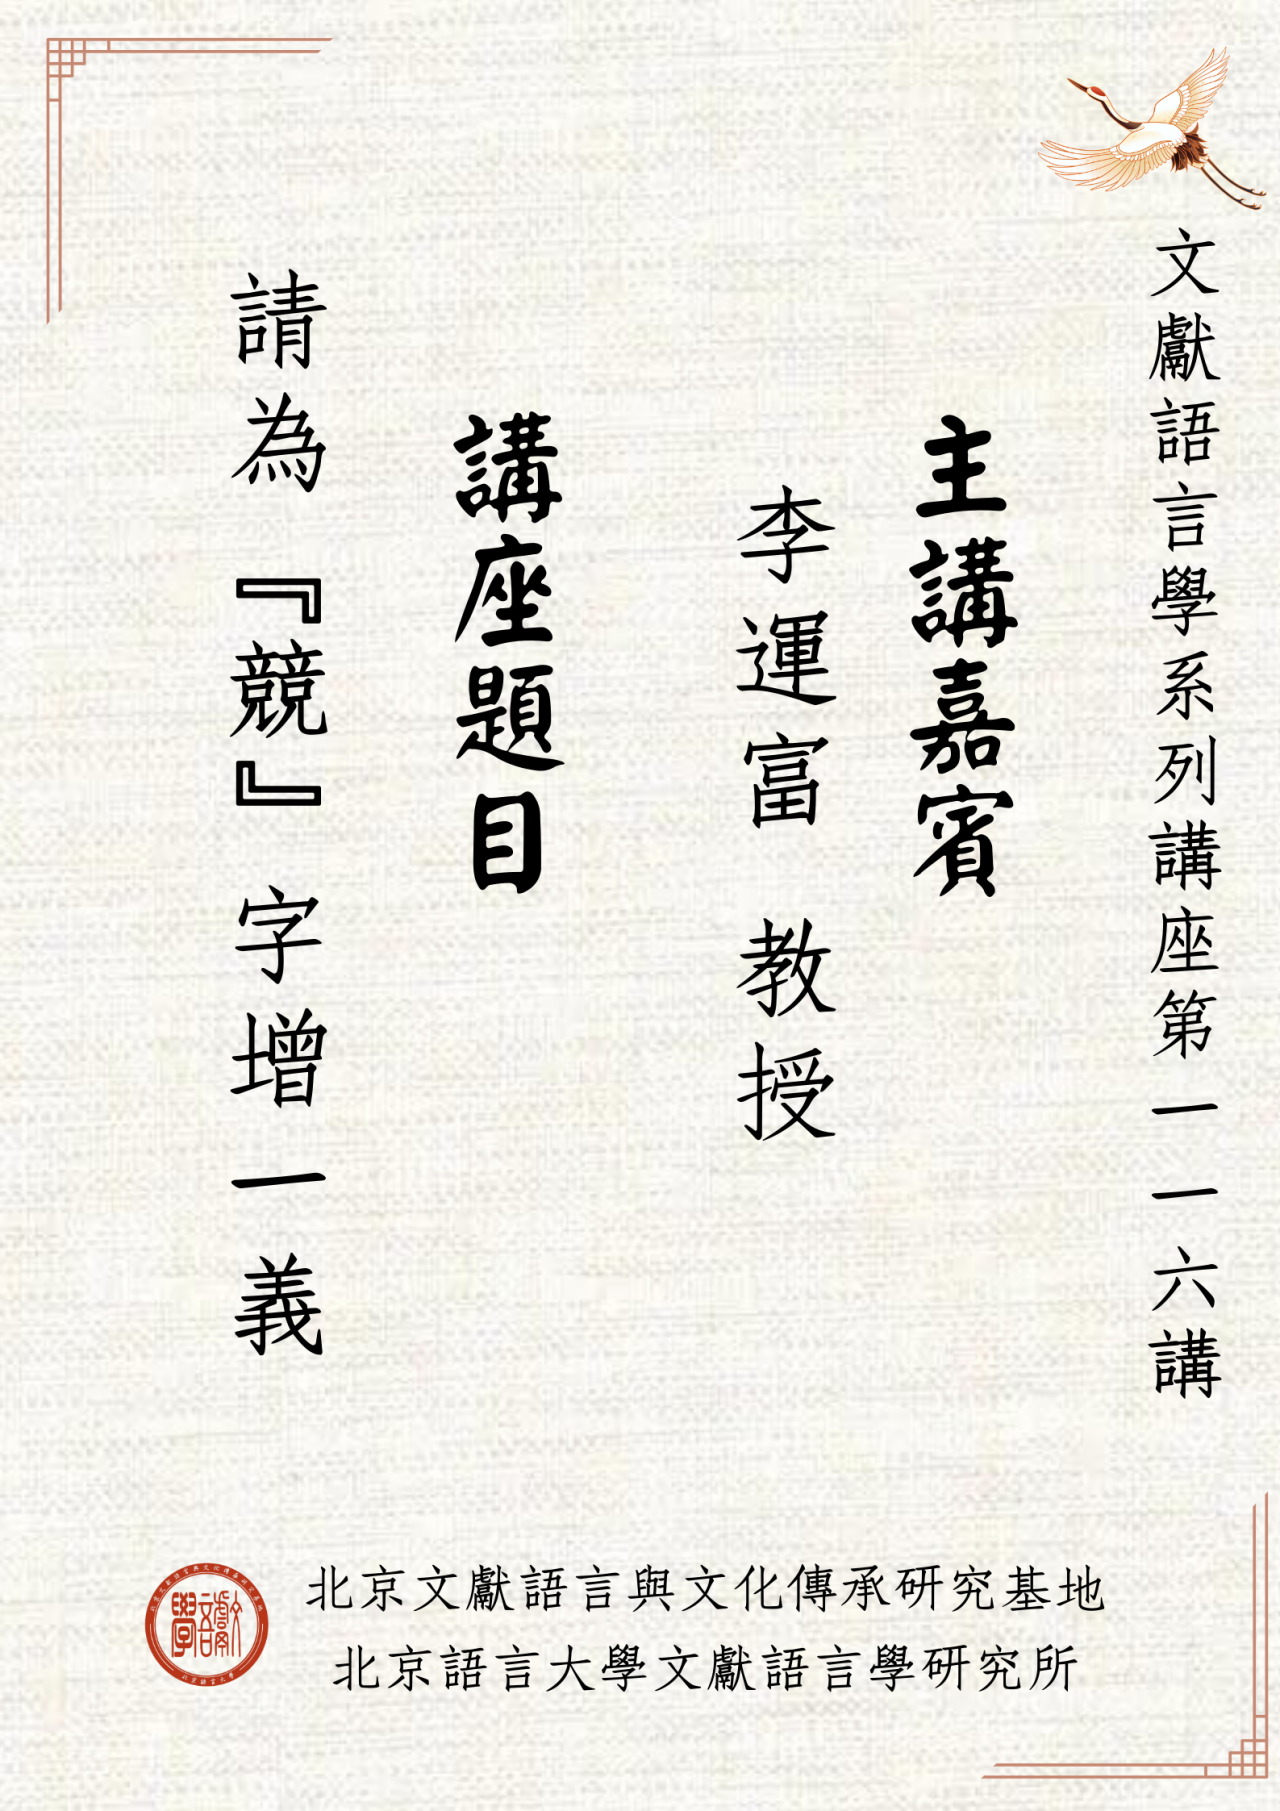 文獻語言學系列講座第一一六講
主講嘉賓
李運富 教授
講座題目
請為『競』字增一義
北京文獻語言與文化傳承研究基地
北京語言大學文獻語言學研究所